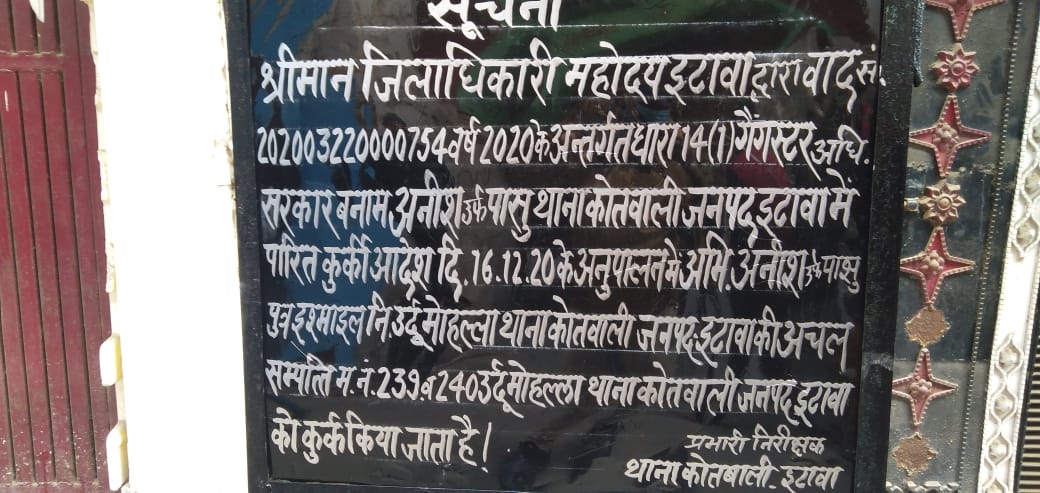 सूचना
श्रीमान जिलाधिकारी महोदय इटावा द्वारा वाद सं.
202003220000754 वर्ष 2020 के अन्तर्गत धारा 14(1) गैंगस्टर अधि.
सरकार बनाम अनीश उर्फ पासु थाना कोतवाली जनपद इटावा में
पारित कुर्की आदेश दि. 16.12.20 के अनुपालन में अभि. अनीश उर्फ पासु
पुत्र इश्माइल नि. उर्दू मोहल्ला थाना कोतवाली जनपद इटावा की अचल
सम्पत्ति म.नं. 239 व 240 उर्दू मोहल्ला थाना कोतवाली जनपद इटावा
को कुर्क किया जाता है।
प्रभारी निरीक्षक
थाना कोतवाली - इटावा